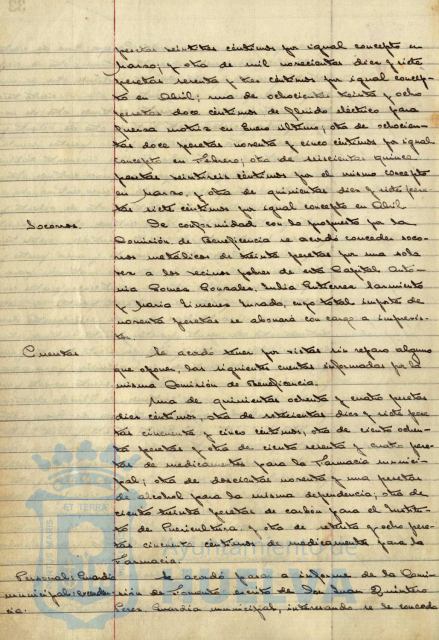 pesetas veintitres céntimos por igual concepto en
Marzo; y otra de mil novecientas diez y siete
pesetas sesenta y tres céntimos por igual concep-
to en Abril; una de ochocientas treinta y ocho
pesetas doce céntimos de flúido eléctrico para
fuerza motriz en Enero último; otra de ochocien-
tas doce pesetas noventa y cinco céntimos por igual
concepto en Febrero; otra de seiscientas quince
pesetas veintiseis céntimos por el mismo concepto
en Marzo, y otra de quinientas diez y siete pese-
tas siete céntimos por igual concepto en Abril.
Socorros. De conformidad con lo propuesto por la
Comisión de Beneficencia se acordó conceder soco-
rros metálicos de treinta pesetas por una sola
vez a los vecinos pobres de esta Capital Antó-
nia Gomez Gonzalez, Julia Gutierrez Sarmiento
y Maria Jimenez Jurado, cuyo total importe de
noventa pesetas se abonará con cargo a imprevis-
tos.
Cuentas Se acordó tener por vistas sin reparo alguno
que oponer, las siguientes cuentas informadas por la
misma Comisión de Beneficencia.
Una de quinientas ochenta y cuatro pesetas
diez céntimos, otra de setecientas diez y siete pese-
tas cincuenta y cinco céntimos, otra de ciento ochen-
ta pesetas y otra de ciento sesenta y cuatro pese-
tas de medicamentos para la Farmacia munici-
pal; otra de doscientas noventa y una pesetas
de alcohol para la misma dependencia; otra de
ciento treinta pesetas de carbón para el Institu-
to de Puericultura, y otra de setenta y ocho pese-
tas cincuenta céntimos de medicamentos para la
Farmacia.
Personal: Guardia Se acordó pasar a informe de la Comi-
municipal: exceden- sión de Fomento, escrito de Don Juan Quintero
cia. Perez, Guardia municipal, interesando se le conceda
Ayuntamiento de
HUELVA
ET TERRA